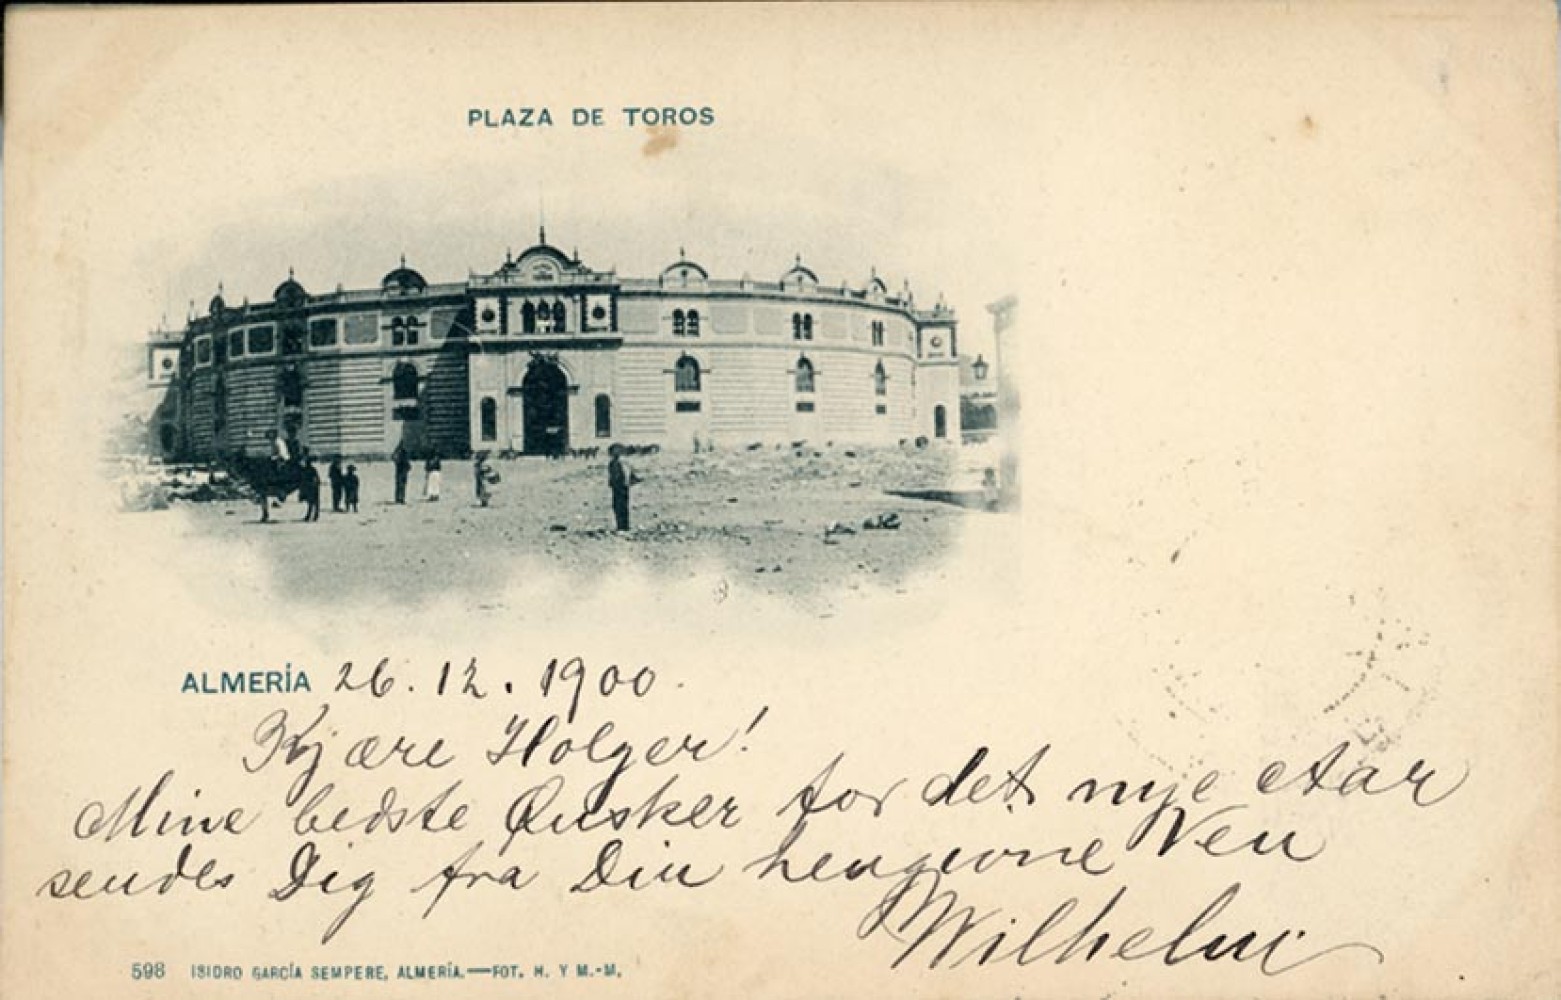 PLAZA DE TOROS
ALMERÍA 26.12.1900.
Kjære Holger!
Mine bedste Ønsker for det nye Aar
sendes Dig fra Din hengivne Ven
Wilhelm
598 ISIDRO GARCÍA SEMPERE, ALMERÍA.—FOT. H. Y M.-M.